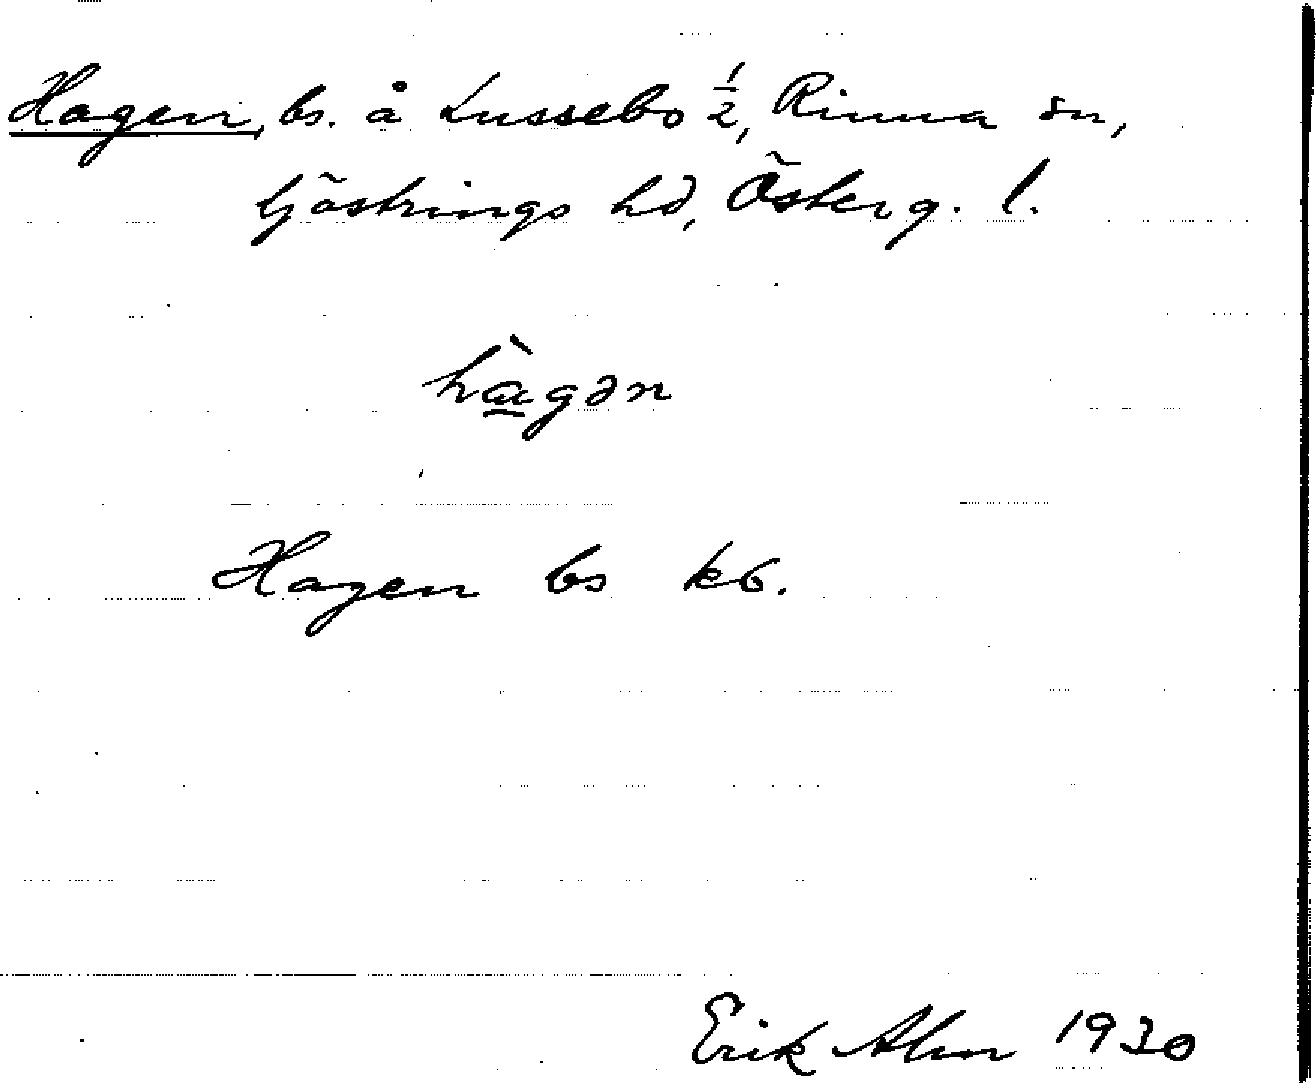 Hagen, bs. å Lussebo ½, Rinna sn,
Göstrings hd, Österg. l.
hàgən
Hagen bs kb.
Erik Alm 1930